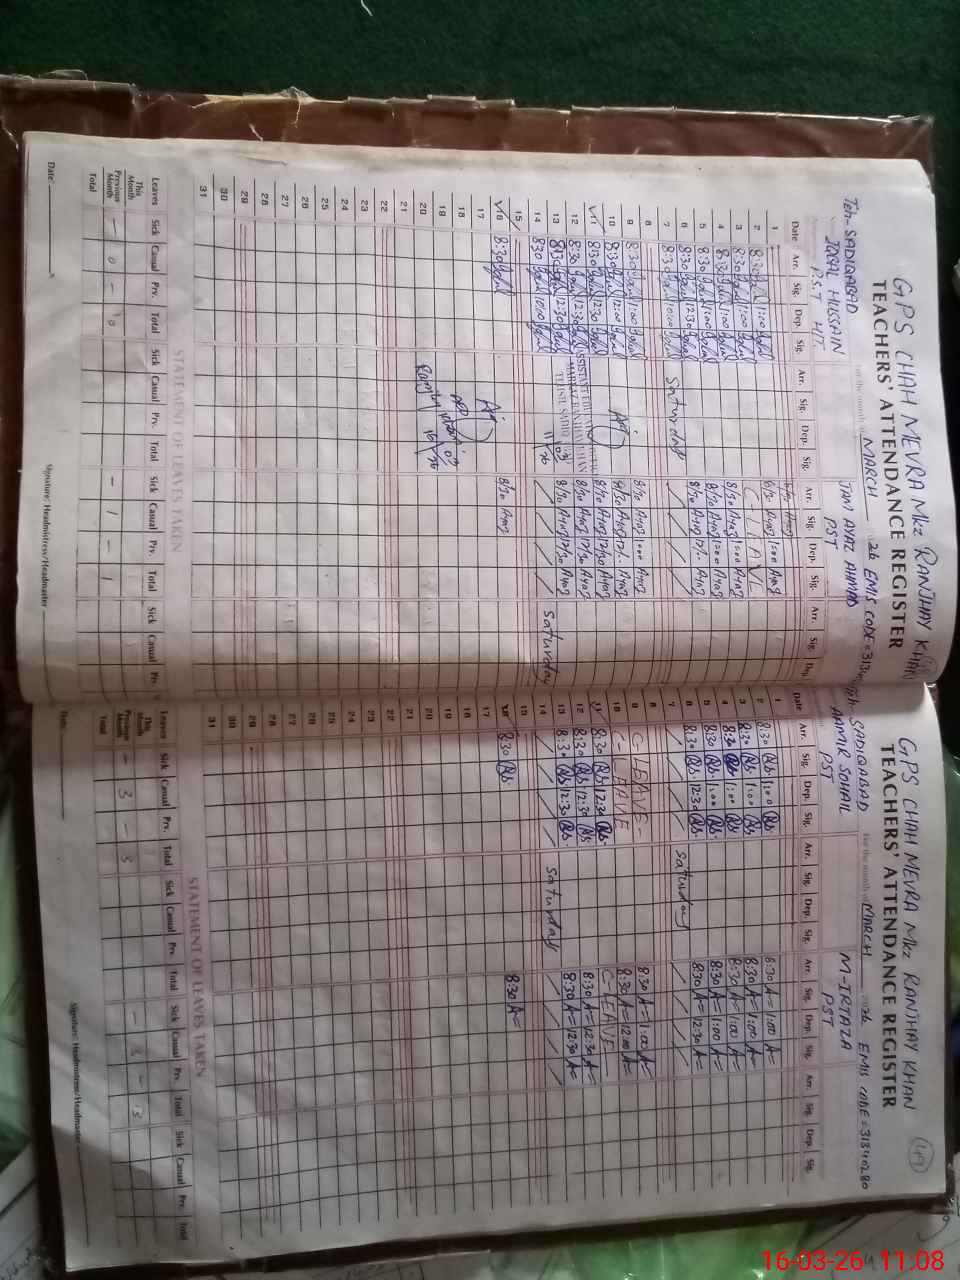 GPS CHAH MEVRA Mkz RANJHAY KHAN
TEACHERS' ATTENDANCE REGISTER
Teh- SADIQABAD For the month of MARCH 2026 EMIS CODE = 313
IQBAL HUSSAIN
P.S.T H.T.
JAM AYAZ AHMAD
PST
Date Arr. Sig. Dep. Sig. Arr. Sig. Dep. Sig. Arr. Sig. Dep. Sig. Arr. Sig. Dep.
1
2 8:30 1:00 8/30 Ayaz 1:00 Ayaz
3 8:30 1:00 C-LEAVE
4 8:30 1:00 8/30 Ayaz 1:00 Ayaz
5 8:30 1:00 8/30 Ayaz 1:00 Ayaz
6 8:30 12:30 8/30 Ayaz 12/30 Ayaz
7 8:30 10:00 Saturday
8
9 8:30 1:00 8/30 Ayaz 1:00 Ayaz
10 8:30 12:00 8/30 Ayaz 12/- Ayaz
11 8:30 12:30 8/30 Ayaz 12/30 Ayaz
12 8:30 12:30 8/30 Ayaz 12/30 Ayaz
13 8:30 12:30 8/30 Ayaz 12/30 Ayaz
14 8:30 10:00 Saturday
15
16 8:30 8/30 Ayaz
17
18
19
20
21
22
23
24
25
26
27
28
29
30
31
STATEMENT OF LEAVES TAKEN
Leaves Sick Casual Prv. Total Sick Casual Prv. Total Sick Casual Prv. Total Sick Casual Prv.
This Month
Previous Month - 0 - 0 - 1 - 1
Total
Date: Signature: Headmistress/Headmaster
GPS CHAH MEVRA Mkz RANJHAY KHAN 49
TEACHERS' ATTENDANCE REGISTER
Teh- SADIQABAD For the month of MARCH 2026 EMIS CODE = 31340280
AAMIR SOHAIL
PST
M-IRTAZA
PST
Date Arr. Sig. Dep. Sig. Arr. Sig. Dep. Sig. Arr. Sig. Dep. Sig. Arr. Sig. Dep. Sig.
1
2 8:30 1:00 8:30 1:00
3 8:30 1:00 8:30 1:00
4 8:30 1:00 8:30 1:00
5 8:30 1:00 8:30 1:00
6 8:30 12:30 8:30 12:30
7 Saturday
8
9 C-LEAVE- 8:30 1:00
10 C-LEAVE 8:30 12:00
11 8:30 12:30 C-LEAVE-
12 8:30 12:30 8:30 12:30
13 8:30 12:30 8:30 12:30
14 Saturday
15
16 8:30 8:30
17
18
19
20
21
22
23
24
25
26
27
28
29
30
31
STATEMENT OF LEAVES TAKEN
Leaves Sick Casual Prv. Total Sick Casual Prv. Total Sick Casual Prv. Total Sick Casual Prv. Total
This Month
Previous Month - 3 - 3 - 3 - 3
Total
Date: Signature: Headmistress/Headmaster
16-03-26 11:08